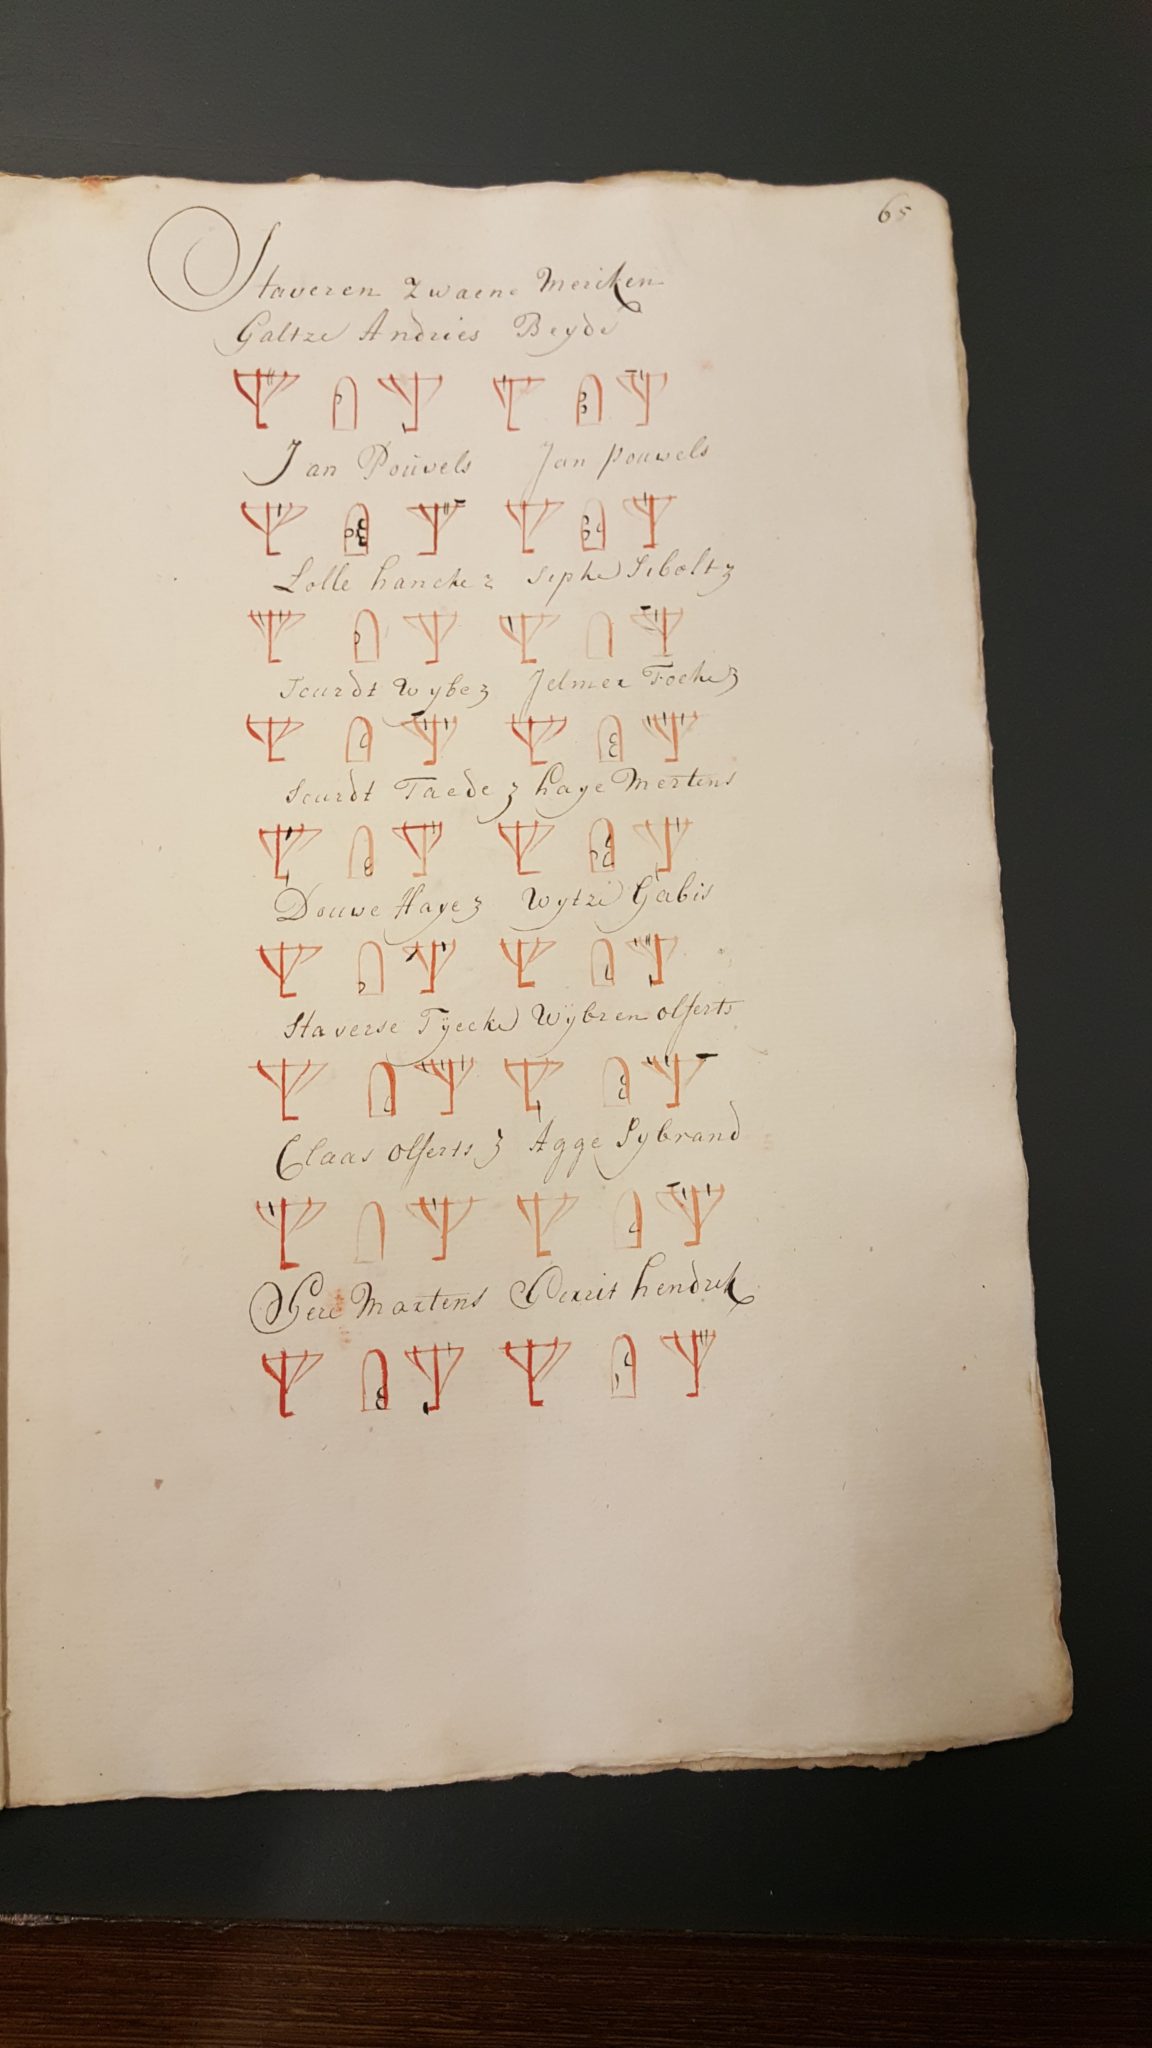 65
Staveren Zwaene Mercken
Galtze Andries Beyde
Jan Pouwels Jan pouwels
Lolle hancke z Sipke Sibolt z
Scurdt Wybe z Jelmer Focke z
Scurdt Taede z haye Mertens
Douwe Haye z Wytze Gabis
Staverse Tÿecke Wÿbren olferts
Claas olferts z Agge Sybrand
Martens Gerrit hendrik